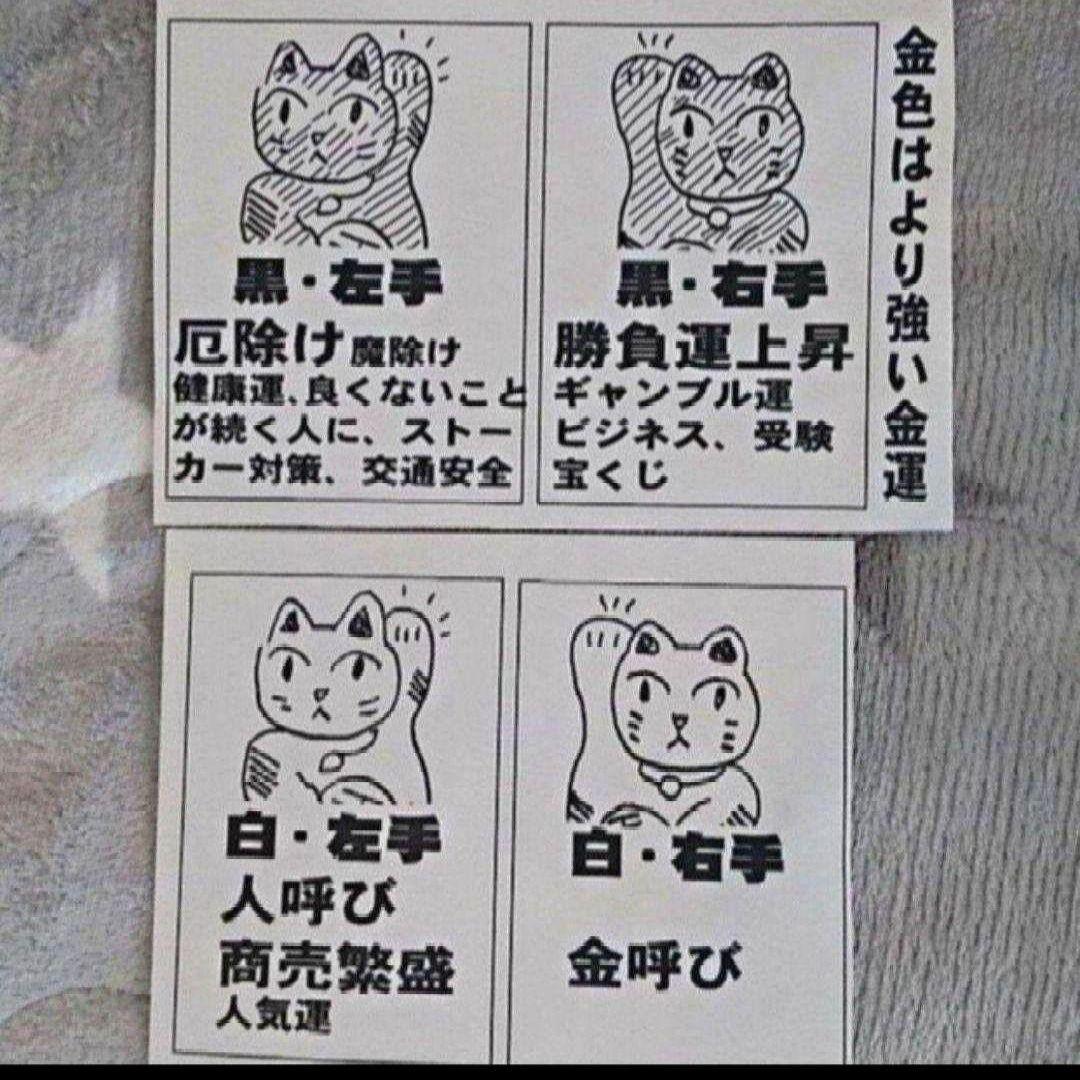 黒・左手
厄除け 魔除け
健康運、良くないこと
が続く人に、ストー
カー対策、交通安全
黒・右手
勝負運上昇
ギャンブル運
ビジネス、受験
宝くじ
金色はより強い金運
白・左手
人呼び
商売繁盛
人気運
白・右手
金呼び